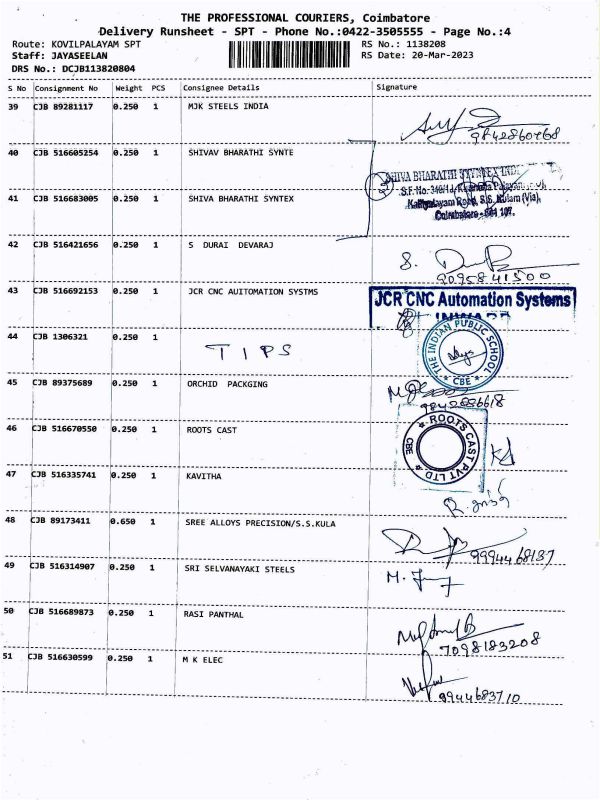 THE PROFESSIONAL COURIERS, Coimbatore
Delivery Runsheet - SPT - Phone No.:0422-3505555 - Page No.:4
Route: KOVILPALAYAM SPT RS No.: 1138208
Staff: JAYASEELAN RS Date: 20-Mar-2023
DRS No.: DCJB113820804
S No Consignment No Weight PCS Consignee Details Signature
39 CJB 89281117 0.250 1 MJK STEELS INDIA
9842860468
40 CJB 516605254 0.250 1 SHIVAV BHARATHI SYNTE
SHIVA BHARATHI SYNTEX
41 CJB 516683005 0.250 1 SHIVA BHARATHI SYNTEX
Road, S.S. Kulam (Via),
Coimbatore - 641 107.
42 CJB 516421656 0.250 1 S DURAI DEVARAJ
S.
9095841500
43 CJB 516692153 0.250 1 JCR CNC AUITOMATION SYSTMS
JCR CNC Automation Systems
INWARD
44 CJB 1306321 0.250 1 TIPS
THE INDIAN PUBLIC SCHOOL
* CBE *
45 CJB 89375689 0.250 1 ORCHID PACKGING
46 CJB 516670550 0.250 1 ROOTS CAST
ROOTS CAST PVT LTD
CBE
47 CJB 516335741 0.250 1 KAVITHA
48 CJB 89173411 0.650 1 SREE ALLOYS PRECISION/S.S.KULA
9994468137
49 CJB 516314907 0.250 1 SRI SELVANAYAKI STEELS
50 CJB 516689873 0.250 1 RASI PANTHAL
7098183208
51 CJB 516630599 0.250 1 M K ELEC
9944683710